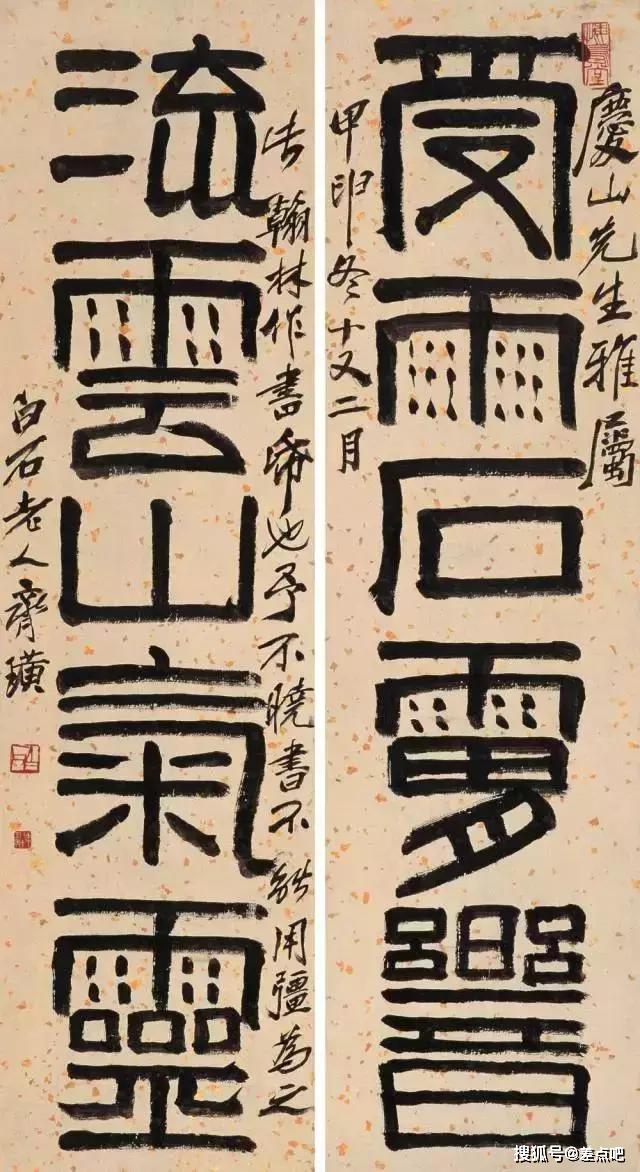 慶山先生雅屬
受雨石響
甲申冬十又二月
翰林作書也予不曉書不能用彊為之
流雲山氣靈
白石老人齊璜
搜狐号@差点吧